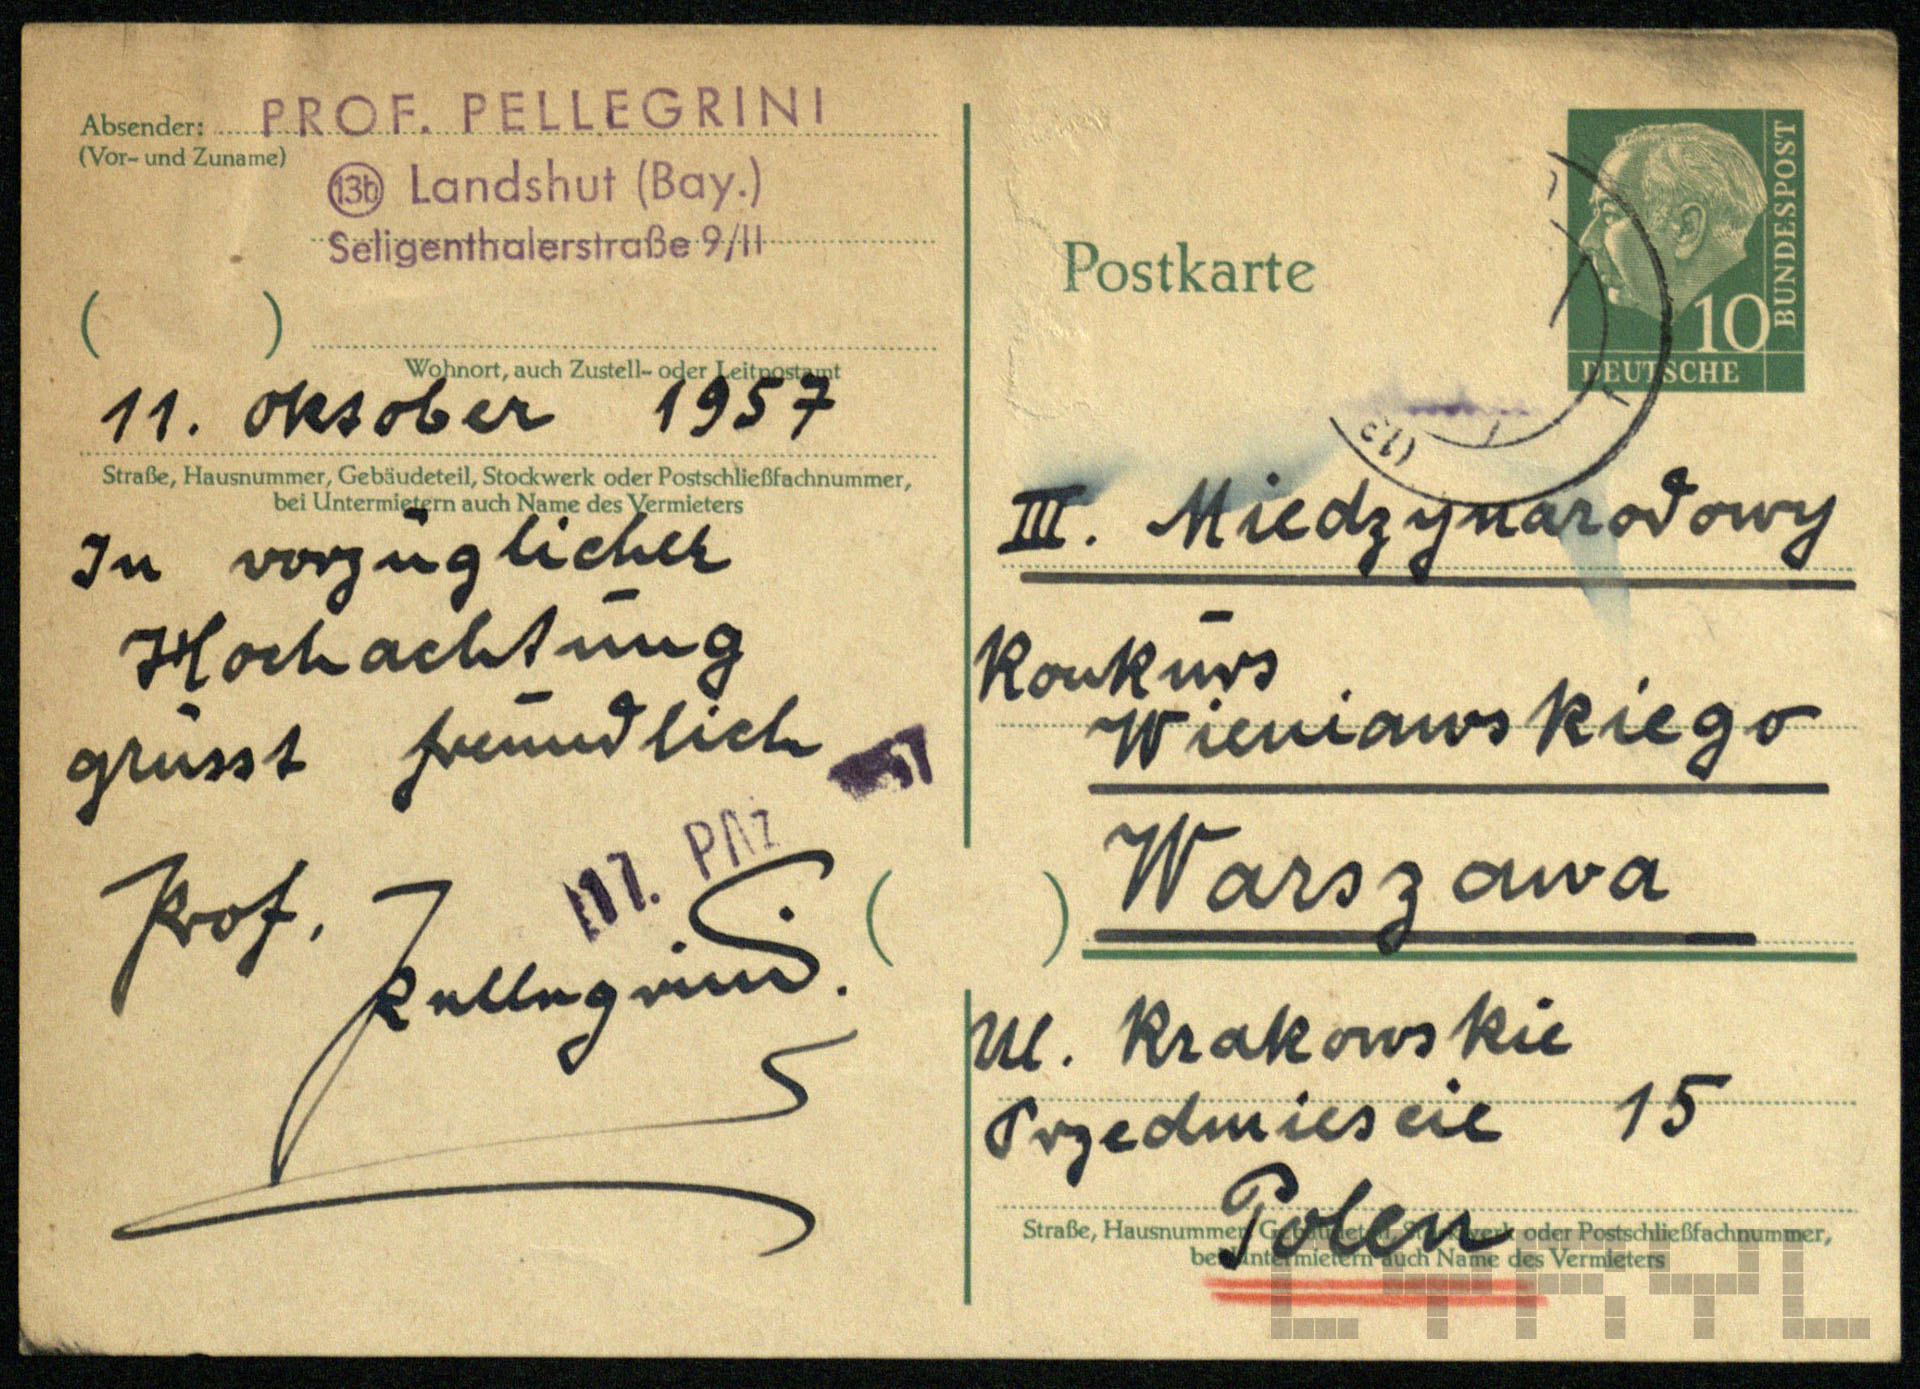 Absender: PROF. PELLEGRINI
(Vor- und Zuname)
13b Landshut (Bay.)
Seligenthalerstraße 9/II
( )
Wohnort, auch Zustell- oder Leitpostamt
11. Oktober 1957
Straße, Hausnummer, Gebäudeteil, Stockwerk oder Postschließfachnummer,
bei Untermietern auch Name des Vermieters
In vorzüglicher
Hochachtung
grüsst freundlich
17. PAZ 57
Prof. Pellegrini.
Postkarte
10
DEUTSCHE
BUNDESPOST
(13
III. Miedzynarodowy
Konkurs
Wieniawskiego
Warszawa
( )
Ul. Krakowskie
Przedmiescie 15
Polen
Straße, Hausnummer, Gebäudeteil, Stockwerk oder Postschließfachnummer,
bei Untermietern auch Name des Vermieters